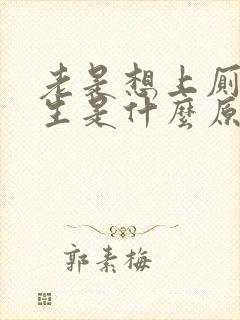 老是想上厕
生是什麼原
郭素梅